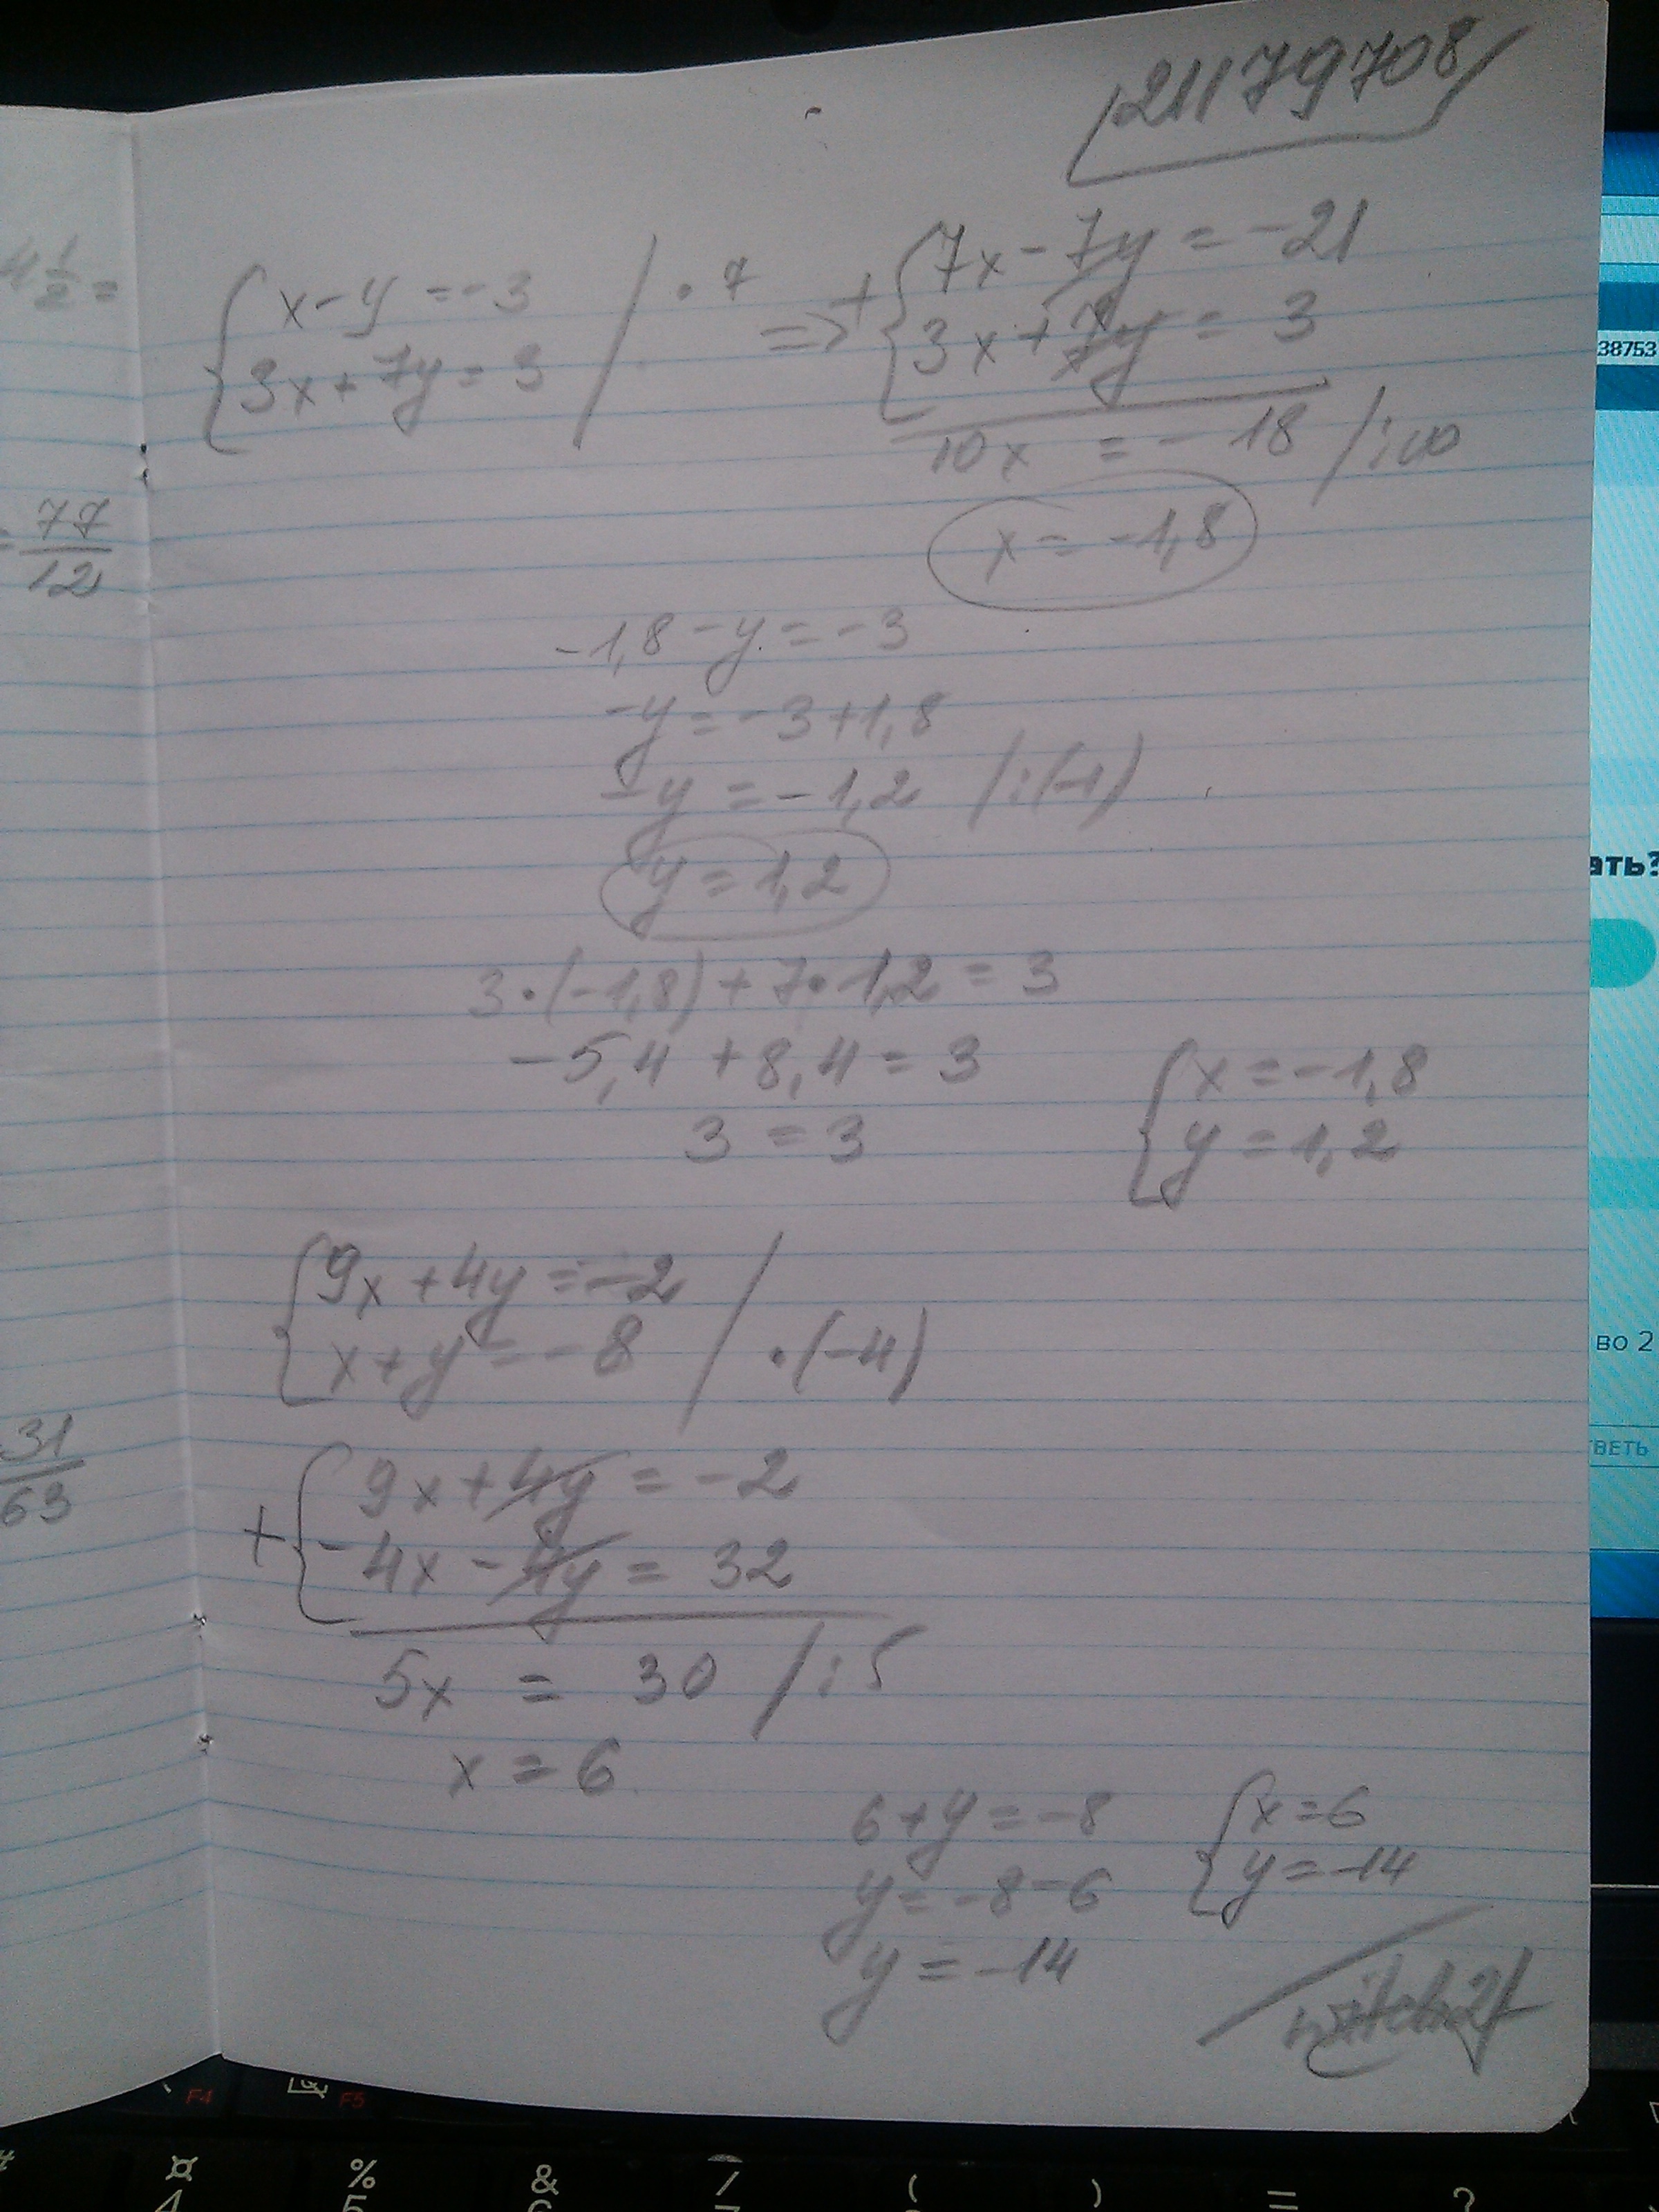 21179708
4 1/2 =
{ x-y=-3 / · 7
3x+7y=3
=> + { 7x-7y=-21
3x+7y=3
10x = -18 /:10
x=-1,8
= 77/12
-1,8-y=-3
-y=-3+1,8
-y=-1,2 /:(-1)
y=1,2
3·(-1,8)+7·1,2=3
-5,4+8,4=3
3=3
{ x=-1,8
y=1,2
{ 9x+4y=-2
x+y=-8 / ·(-4)
31/63
+ { 9x+4y=-2
-4x-4y=32
5x = 30 /:5
x=6
6+y=-8
y=-8-6
y=-14
{ x=6
y=-14
38753
ать?
во 2
ВЕТЬ
F4 F5
¤ % & / ( ) = ?
4 5 6 7